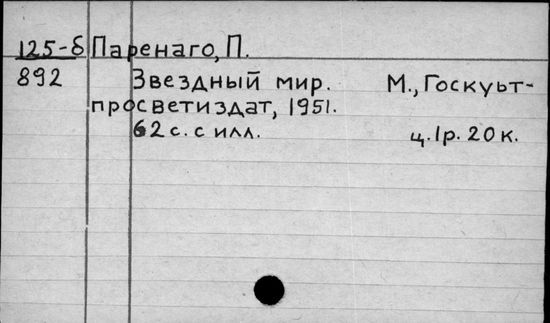 125-б Паренаго, П.
892 Звездный мир. М., Госкуьт-
просветиздат, 1951.
62 с. с илл. ц. 1р. 20 к.